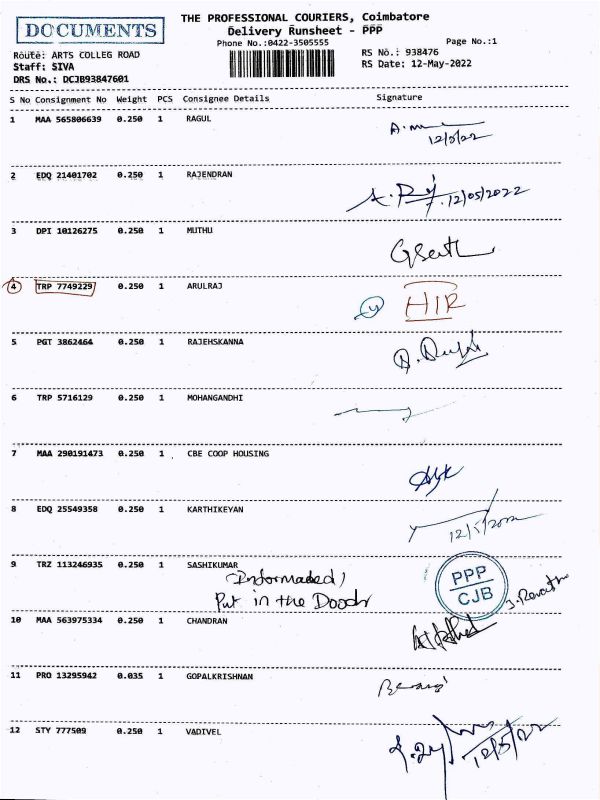 DOCUMENTS
THE PROFESSIONAL COURIERS, Coimbatore
Delivery Runsheet - PPP
Phone No.:0422-3505555
Page No.:1
Route: ARTS COLLEG ROAD
RS No.: 938476
Staff: SIVA
RS Date: 12-May-2022
DRS No.: DCJB93847601
S No Consignment No Weight PCS Consignee Details Signature
1 MAA 565806639 0.250 1 RAGUL
12/5/22
2 EDQ 21401702 0.250 1 RAJENDRAN
12/05/2022
3 DPI 10126275 0.250 1 MUTHU
4 TRP 7749229 0.250 1 ARULRAJ
HIR
5 PGT 3862464 0.250 1 RAJEHSKANNA
6 TRP 5716129 0.250 1 MOHANGANDHI
7 MAA 290191473 0.250 1 CBE COOP HOUSING
8 EDQ 25549358 0.250 1 KARTHIKEYAN
12/5/2022
9 TRZ 113246935 0.250 1 SASHIKUMAR
(Informaded)
Put in the Doodr
PPP
CJB
10 MAA 563975334 0.250 1 CHANDRAN
11 PRO 13295942 0.035 1 GOPALKRISHNAN
12 STY 777509 0.250 1 VADIVEL
12/5/22